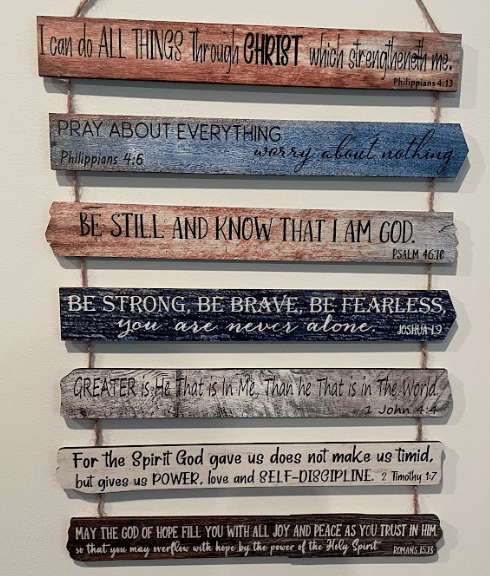 I can do ALL THINGS through CHRIST which strengtheneth me.
Philippians 4:13
PRAY ABOUT EVERYTHING
worry about nothing
Philippians 4:6
BE STILL AND KNOW THAT I AM GOD.
PSALM 46:10
BE STRONG, BE BRAVE, BE FEARLESS,
you are never alone.
JOSHUA 1:9
GREATER is He That is In Me, Than he That is in The World.
1 John 4:4
For the Spirit God gave us does not make us timid,
but gives us POWER, love and SELF-DISCIPLINE. 2 Timothy 1:7
MAY THE GOD OF HOPE FILL YOU WITH ALL JOY AND PEACE AS YOU TRUST IN HIM
so that you may overflow with hope by the power of the Holy Spirit
ROMANS 15:13